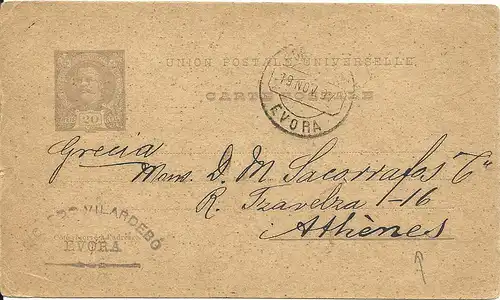 UNION POSTALE UNIVERSELLE
CARTE POSTALE
20
19 NOV 9
EVORA
Grecia
Mrs. D. M. Sacorrafos &
R. Tzavelza 1-16
Athènes
VILARDEBÓ
EVORA